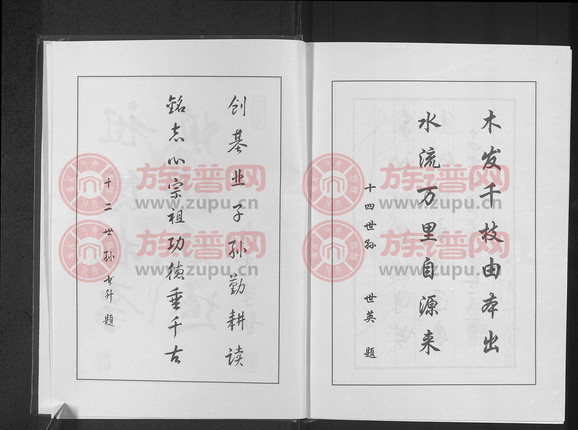 木发千枝由本出
水流万里自源来
十四世孙 世英 题
创基业子孙勤耕读
铭志心宗祖功德垂千古
十二世孙 升 题
族谱网
www.zupu.cn
族谱网
www.zupu.cn
族谱网
www.zupu.cn
族谱网
www.zupu.cn